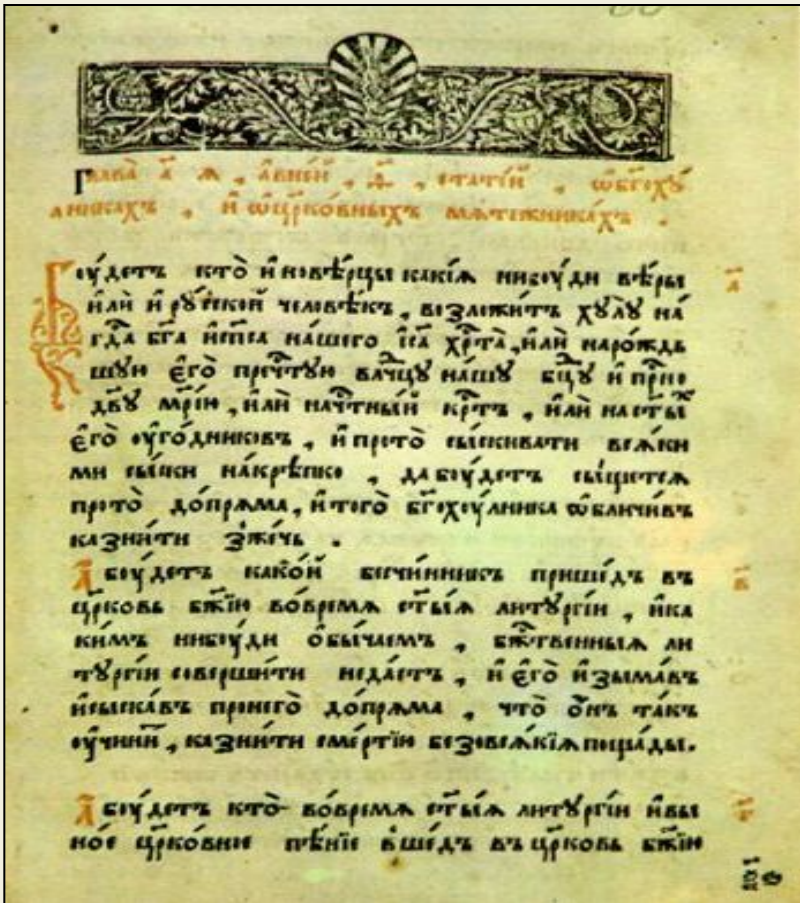 Глава̀ а҃ я, а҆вне́й, д҃, стате́й, ѡ҆бг҃оху́
лникахъ, и҆ ѡ҆цр҃ко́вныхъ мѧте́жникахъ.
Боу́детъ кто̀ и҆новѣ́рцы какі́ѧ нибоу́ди вѣ́ры а҃
и҆лѝ и҆ ру́ской человѣ́къ, возложи́тъ хулу̀ на́
гдⷭ҇а бг҃а и҆сп҃са на́шего і҆с҃а хрⷭ҇та̀, и҆лѝ наро́ждь
шую є҆го̀ пречⷭ҇тую влчⷣцу на́шу бц҃у и҆ прⷭ҇но
дв҃у мр҃і́ю, и҆лѝ начⷭ҇тны́й крⷭ҇тъ, и҆лѝ настⷯы҃
є҆го̀ оу҆го́дниковъ, и҆ прото̀ сы́скивати всѧ́ки
ми сы́ски на́крѣпко, да боу́детъ сы́щетсѧ
прото̀ до́прѧма, и҆ того̀ бг҃охоу́лника ѡ҆бличи́въ
казни́ти зже́чь.
А҆ боу́детъ како́й бесчи́нникъ прише́дъ въ в҃
цр҃ковь бж҃ію во́времѧ ст҃ы́ѧ литургі́и, и҆ка
ки́мъ нибоу́ди о҆бы́чаемъ, бжⷭ҇твенныѧ ли
тургі́и соверши́ти неда́стъ, и҆ є҆го̀ и҆зыма́въ
и҆сыска́въ пронего̀ до́прѧма, что̀ о҆́нъ та́къ
оу҆чини́т, казни́ти сме́ртію безовсѧ́кіѧ поща́ды.
А҆ боу́детъ кто̀ во́времѧ ст҃ы́ѧ литургі́и и҆вы г҃
но́е цр҃ко́вное пѣ́ніе вше́дъ въ цр҃ковь бж҃ію